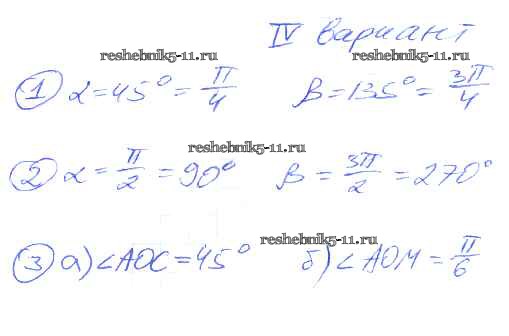 IV вариант
reshebnik5-11.ru reshebnik5-11.ru
1 α = 45° = π/4 β = 135° = 3π/4
reshebnik5-11.ru
2 α = π/2 = 90° β = 3π/2 = 270°
reshebnik5-11.ru
3 а) ∠AOC = 45° б) ∠AOM = π/6